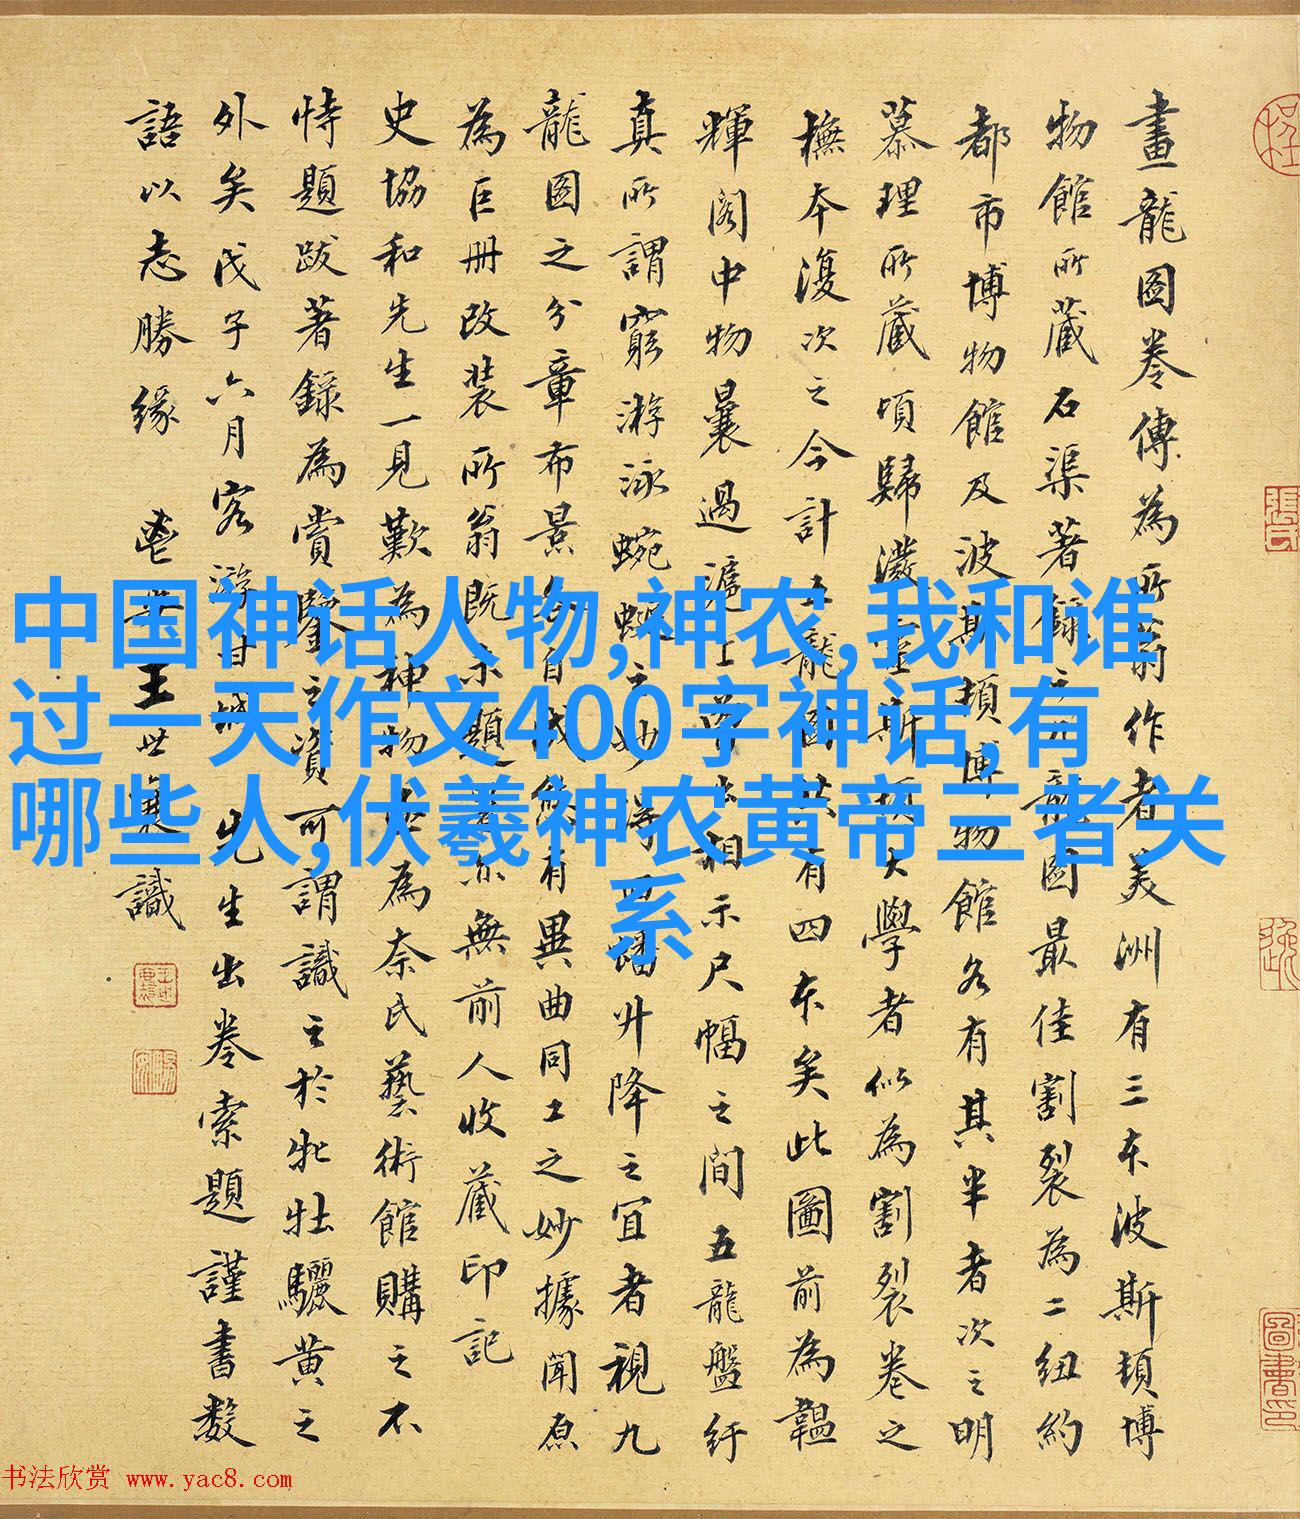 畫龍圖卷傳為所翁作者美洲有三本波斯頓博
物館所藏石渠著錄之九龍圖最佳割裂為二紐約
都市博物館及波斯頓博物館各有其半者次之明
慕理所藏頃歸濮
斯頓大學者似為割裂卷之
撫本復次之今計五龍圖共有四本矣此圖前為韞
輝閣中物曩過滬上
相示尺幅之間五龍盤紆
真所謂窮游泳蜿蜒之妙得回蟠升降之宜者視九
龍圖之分章布景各自成
有異曲同工之妙據聞原
為巨冊改裝所翁既未題署亦無前人收藏印記
史協和先生一見歎為神物亟為奈氏藝術館購之不
特題跋著錄為賞鑒之資可謂識之於牝牡驪黃之
外矣戊子六月客游甘城
先生出卷索題謹書數
語以志勝緣
王世襄識
中国神话人物,神农,我和谁
过一天作文400字神话,有
哪些人,伏羲神农黄帝三者关
系
书法欣赏 www.yac8.com